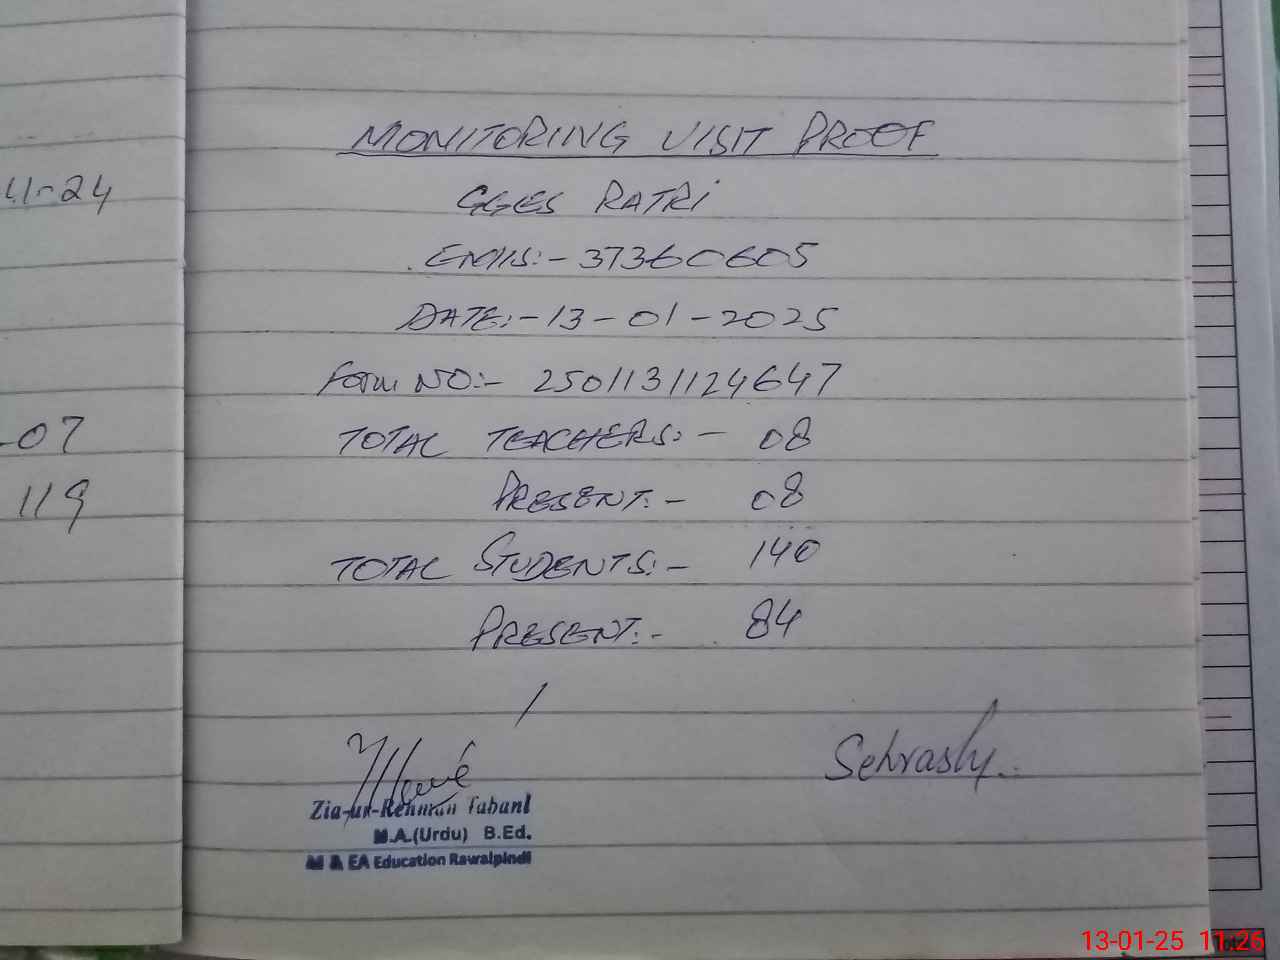 11-24
-07
119
MONITORING VISIT PROOF
GGES RATRI
EMIS:- 37360605
DATE:- 13-01-2025
Form NO:- 2501131124647
TOTAL TEACHERS:- 08
PRESENT:- 08
TOTAL STUDENTS:- 140
PRESENT:- 84
Sehrash
Zia-ur-Rehman Tabani
M.A.(Urdu) B.Ed.
M & EA Education Rawalpindi
13-01-25 11:26